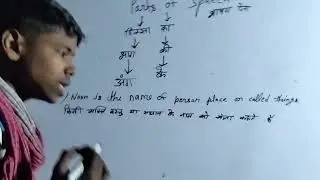 Parts of Speech
हिस्सा का
भाग की
अंग के
1) Noun is the name of person place or called things.
किसी व्यक्ति वस्तु या स्थान के नाम को संज्ञा कहते हैं